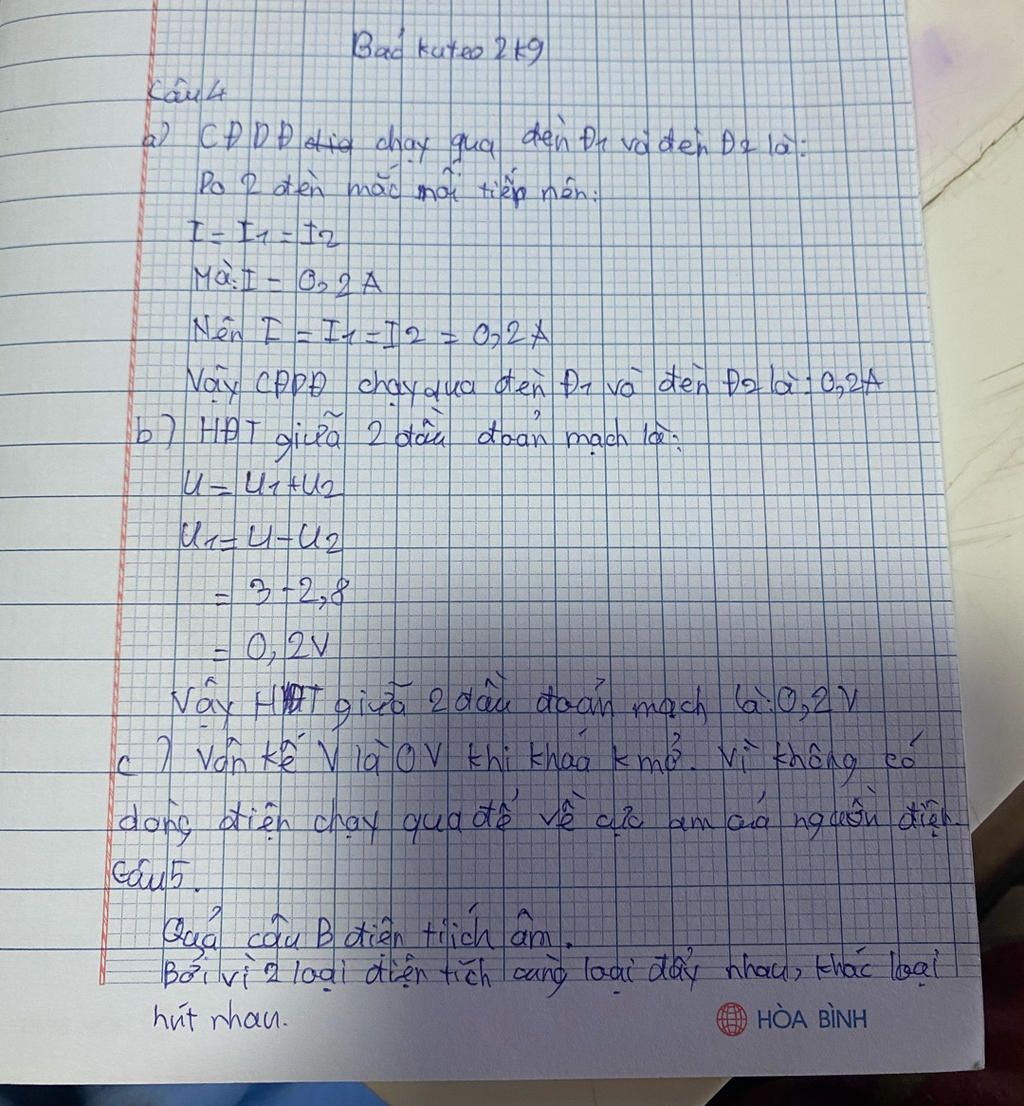 Bảo kuteo 2k9
Câu 4
a) CĐDĐ chạy qua đèn Đ1 và đèn Đ2 là:
Do 2 đèn mắc nối tiếp nên:
I = I1 = I2
Mà: I = 0,2A
Nên I = I1 = I2 = 0,2A
Vậy CĐDĐ chạy qua đèn Đ1 và đèn Đ2 là: 0,2A
b) HĐT giữa 2 đầu đoản mạch là:
U = U1 + U2
U1 = U - U2
= 3 - 2,8
= 0,2V
Vậy HĐT giữa 2 đầu đoản mạch là: 0,2V
c) Vôn kế V là 0V khi khoá k mở. Vì không có
dòng điện chạy qua để về cực âm củả nguồn điện.
Câu 5.
Quả cầu B điện tích âm.
Bởi vì 2 loại điện tích cùng loại đẩy nhau, khác loại
hút nhau.
HÒA BÌNH